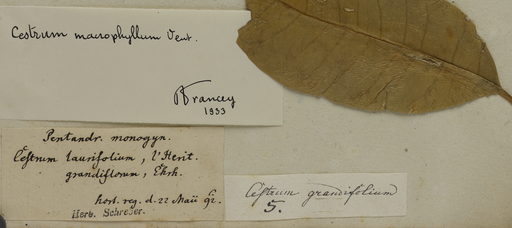 Cestrum macrophyllum Vent.
PFrancey
1933
Pentandr. monogyn.
Cestrum laurifolium, l'Herit.
grandiflorum, Ehrh.
hort. reg. d. 22 Maii 92.
Herb. Schreber.
Cestrum grandifolium
5.